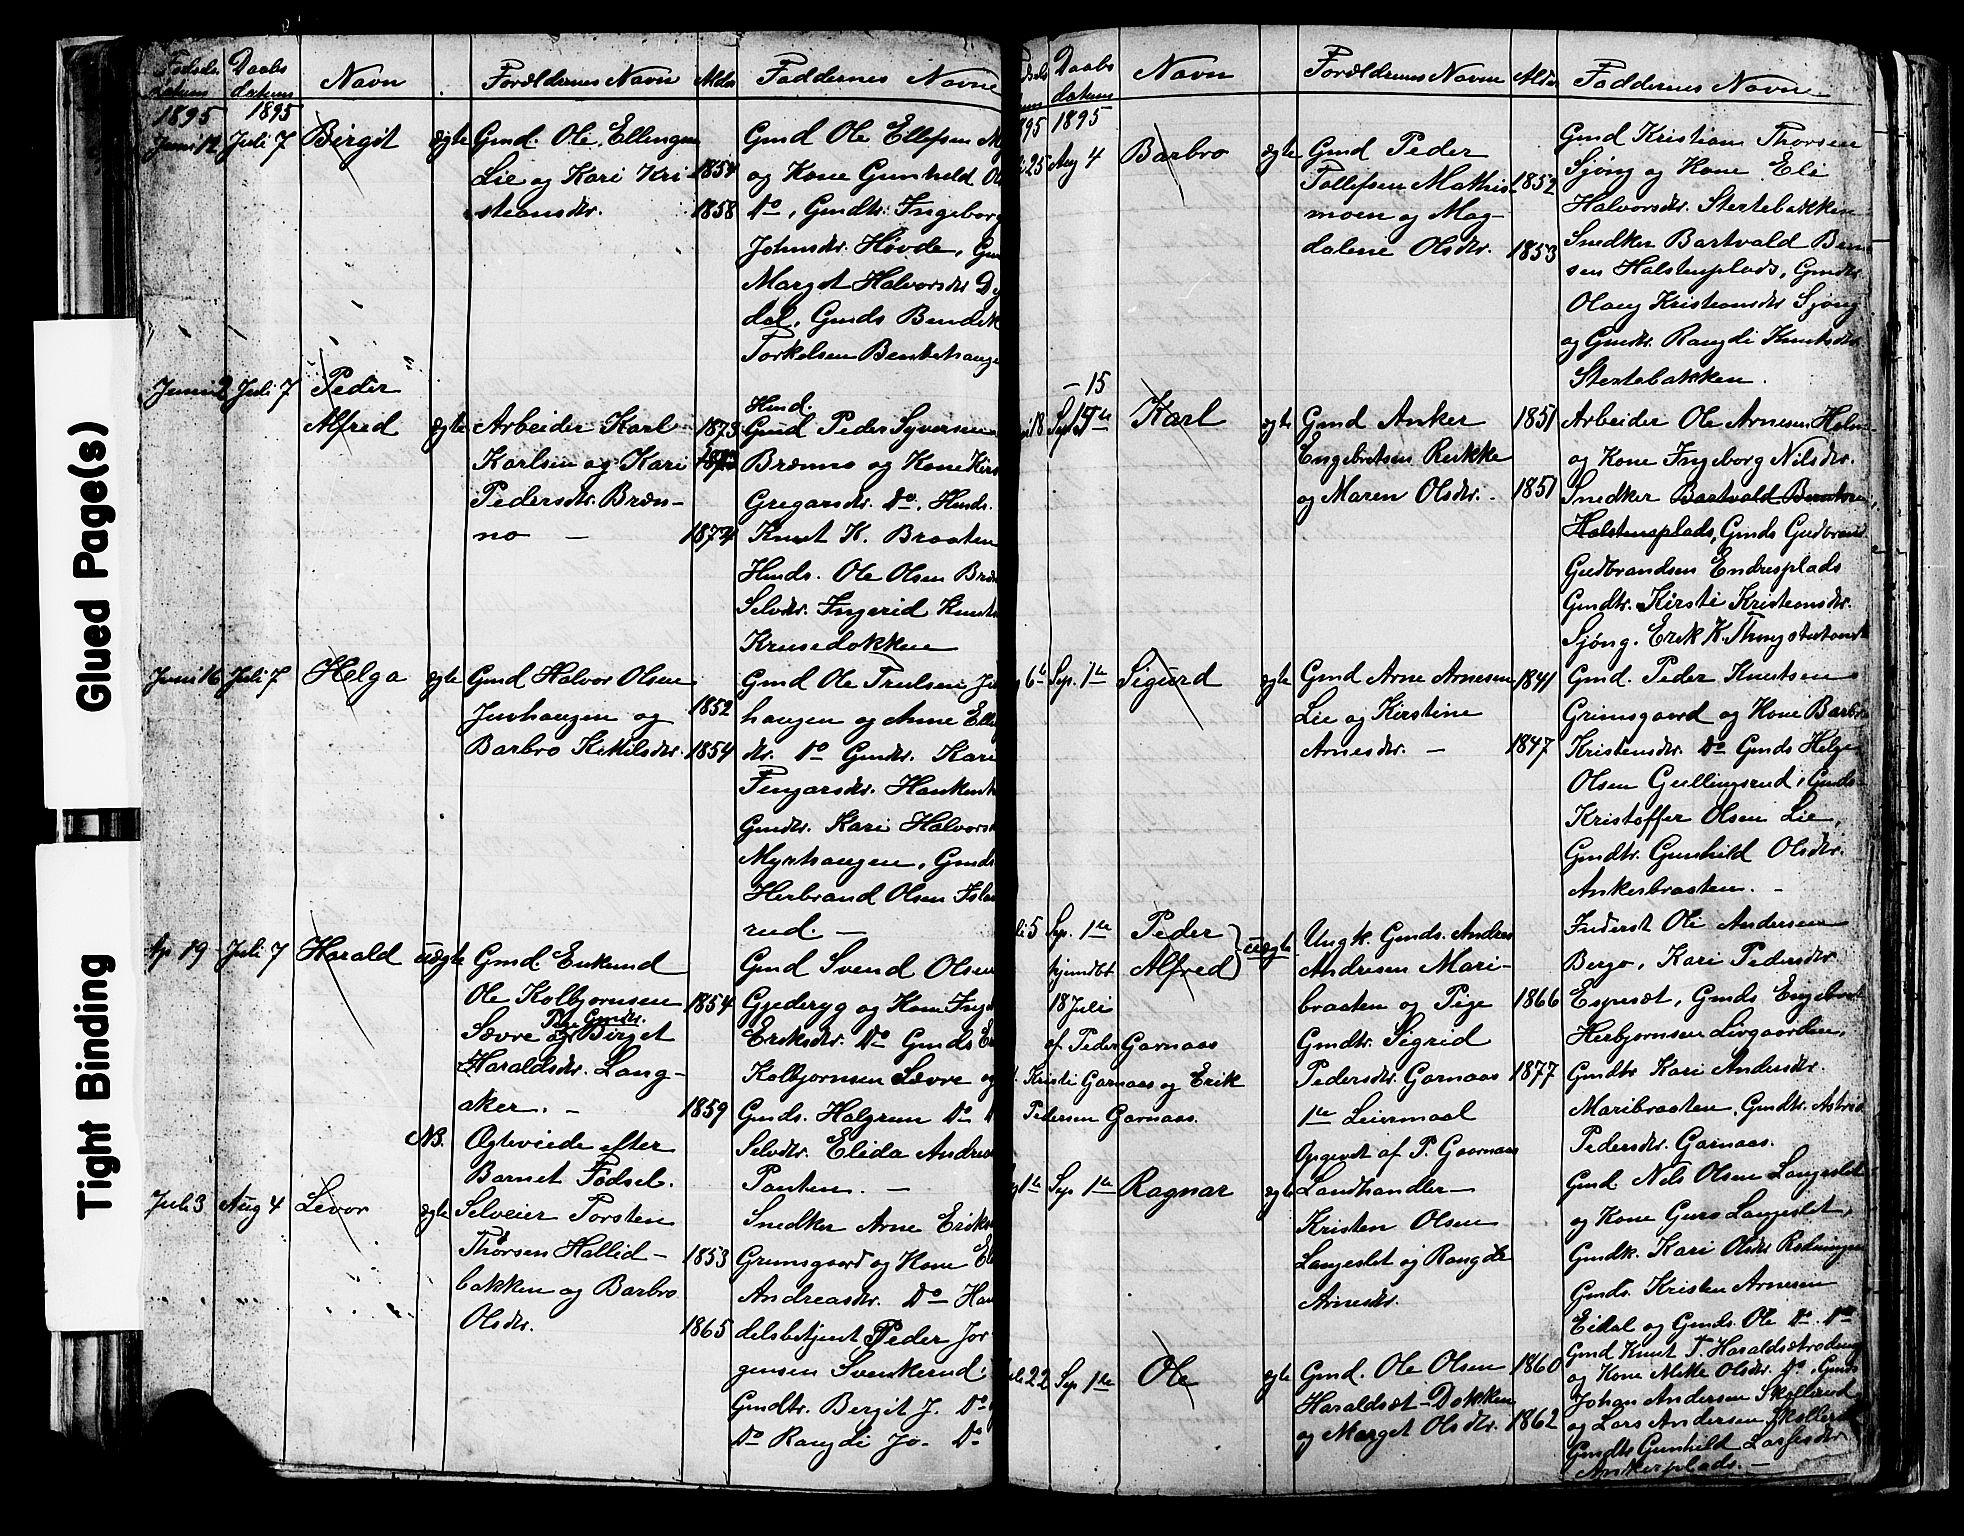 Glued Page(s)
Tight Binding
Fødsels datum
Daabs datum
Navn
Forældrenes Navn
Alder
Faddernes Navne
1895
1895
Juni 12 Juli 7 Birgit ægte Gmd. Ole Ellingsen
Lie og Kari Kri-
steansdtr.
1854
1858
Gmd Ole Ellefsen
og Kone Gunhild
Do, Gmdtr. Ingeborg
Johnsdtr. Høvde,
Marget Halvorsdtr
dal, Gmds Bendik
Torkelsen Bentehauge
Juni 2 Juli 7 Peder
Alfred ægte Arbeider Karl
Karlsen og Kari
Pedersdtr. Bræn-
no —
1873
1874
Hmd.
Gmd Peder Syversen
Brænno og Kone
Gregarsdtr. Do. Hmds.
Knut K. Braaten
Hmds. Ole Olsen
Selvdtr. Ingerid
Krusedokken
Juni 16 Juli 7 Helga ægte Gmd Halvor Olsen
Juvhaugen og
Barbro Ketilsdtr.
1852
1854
Gmd Ole Trulsen
haugen og Anne
dtr. Do Gmdtr. Kari
Fingarsdtr.
Gmdtr. Kari
Myrhaugen, Gmds
Herbrand Olsen
rud. —
Ap 19 Juli 7 Harald uægte Gmd. Enkemd
Ole Kolbjørnsen
Pige Gmdtr.
Sævre og Birget
Haraldsdtr. Lang-
aker. —
1854
1859
NB. Ægteviede efter
Barnet Fødsel.
Gmd Svend Olsen
Gjederyg og Kone
Eriksdtr. Do Gmds
Kolbjørnsen Sævre og
Gmds. Halgrim Do
Selvdtr. Elida
Panten. —
Juli 3 Aug 4 Levor ægte Selveier Torsten
Thorsen Hallid-
bakken og Barbro
Olsdtr.
1853
1865
Snedker Arne
Grimsgaard og Kone
Andreasdtr. Do
delsbetjent Peder Jør-
gensen Svenkerud
Gmdtr. Birgit J. Do
Do Rangdi Jo. Do
Daabs datum
Navn
Forældrenes Navn
Alder
Faddernes Navne
1895
25 Aug 4 Barbro ægte Gmd Peder
Tollefsen Mathis-
moen og Mag-
dalene Olsdtr.
1852
1853
Gmd Kristian Thorsen
Sjong og Kone Eli
Halvorsdtr. Stertebakken
Snedker Bartvald
sen Halstenplads, Gmdtr
Olaug Kristiansdtr Sjong
og Gmdtr. Rangdi Knutsdtr
Stertebakken.
– 15
18 Sep 1te Karl ægte Gmd Anker
Engebretsen Rukke
og Maren Olsdtr.
1851
1851
Arbeider Ole Arnesen
og Kone Ingeborg Nilsdtr.
Snedker Bartvald
Halstensplads, Gmds Gudbrand
Gudbrandsen Endresplads
Gmdtr. Kirsti Kristiansdtr.
Sjong. Erik K.
6te Sep. 1te Sigurd ægte Gmd Arne Arnesen
Lie og Kirstine
Arnesdtr. —
1841
1847
Gmd. Peder Knutsen
Grimsgaard og Kone Barbro
Kristensdtr. Do Gmds Helge
Olsen Gullingsrud, Gmds
Kristoffer Olsen Lie,
Gmdtr. Gunhild Olsdtr.
Ankerbraaten. —
5 Sep. 1te Peder
Alfred uægte Ungk. Gmds. Andres
Andresen Mari-
braaten og Pige
Gmdtr. Sigrid
Pedersdtr. Garnaas
1te Leiermaal
Opgivet af P. Gaarnaas
1866
1877
hjemdøbt
18 Juli
af Peder Garnaas
Kristi Garnaas og Erik
Pedersen Garnaas.
Inderst Ole Andersen
Bergo, Kari Pedersdtr.
Espesæt, Gmds. Engebret
Herbjørnsen Livgaarden,
Gmdtr Kari Andersdtr.
Maribraaten, Gmdtr. Astrid
Pedersdtr. Garnaas.
1te Sep 1te Ragnar ægte Landhandler —
Kristen Olsen
Langeslet og Rangdi
Arnesdtr.
Gmd. Nels Olsen Langeslet
og Kone Guro Langeslet,
Gmdtr. Kari Olsdtr
Gmds. Kristen Arnesen
Eidal og Gmds. Ole Do. Do
22 Sep 1te Ole ægte Gmd. Ole Olsen
Haraldsæt-Dokken
og Marget Olsdtr.
1860
1862
Gmd Knut T.
og Kone Mette Olsdtr. Do. Gmds
Johan Andersen Skollerud
og Lars Andersen Skollerud
Gmdtr Gunhild
Ankerplads. —